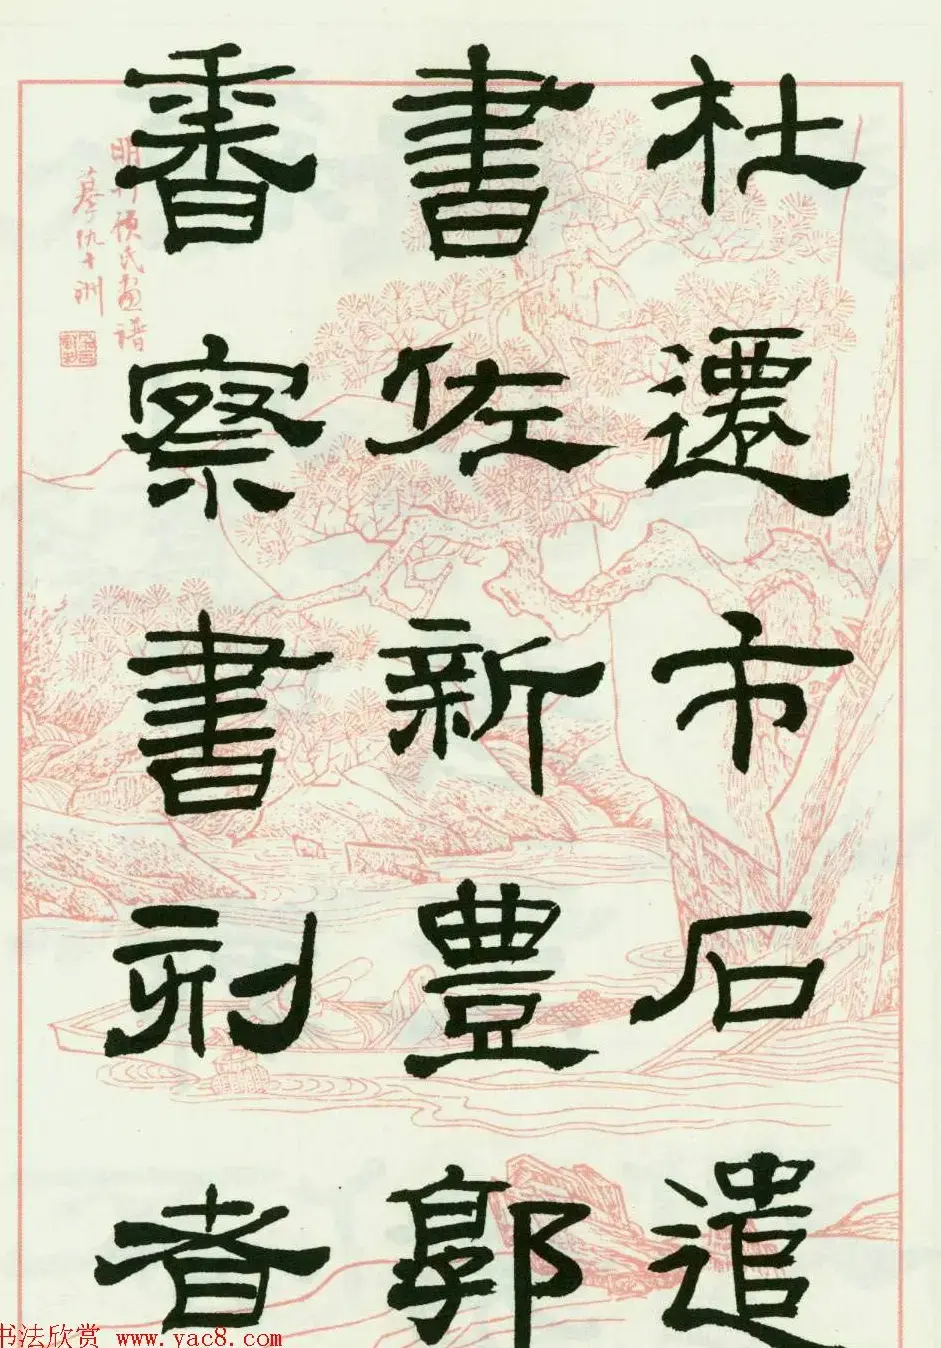 杜遷市石遣
書佐新豐郭
香察書刻者
明刊顧氏畫譜
摹仇十洲
书法欣赏 www.yac8.com